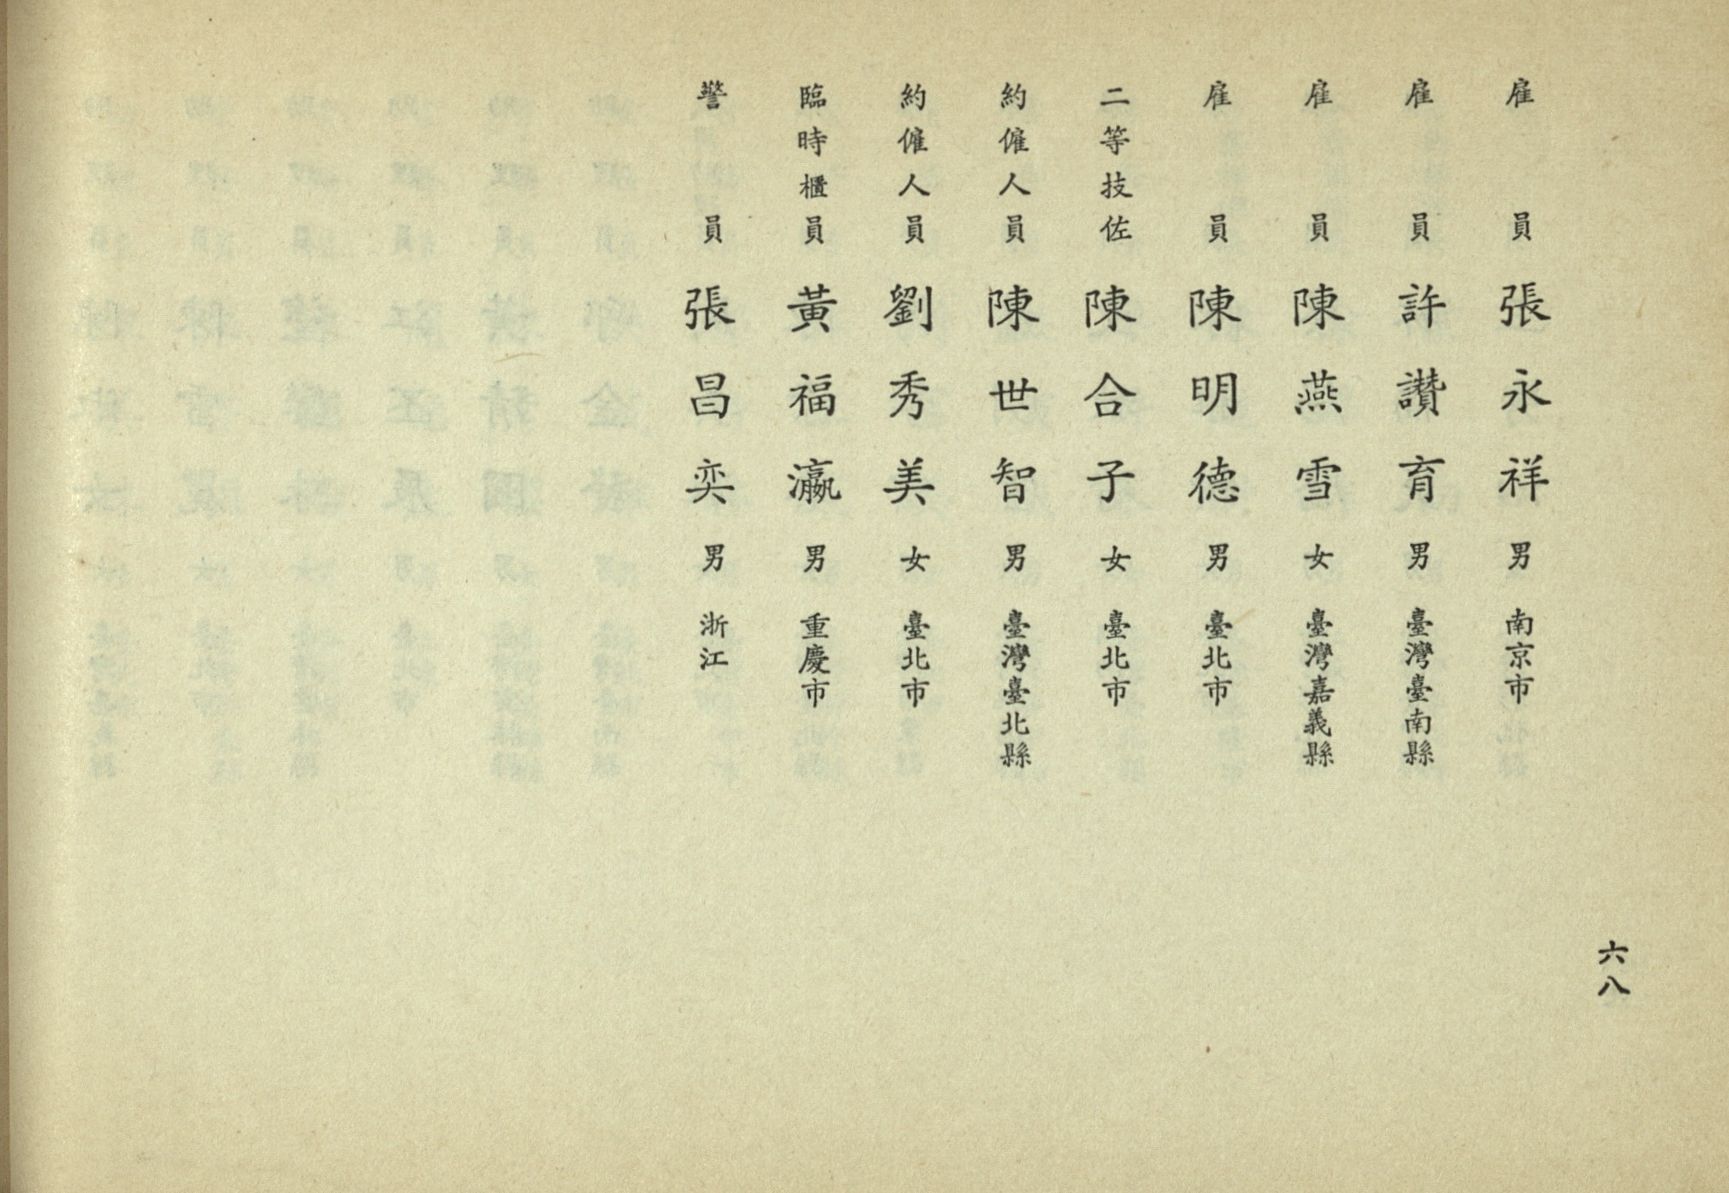 六八
雇員 張永祥 男 南京市
雇員 許讚育 男 臺灣臺南縣
雇員 陳燕雪 女 臺灣嘉義縣
雇員 陳明德 男 臺北市
二等技佐 陳合子 女 臺北市
約僱人員 陳世智 男 臺灣臺北縣
約僱人員 劉秀美 女 臺北市
臨時櫃員 黃福瀛 男 重慶市
警員 張昌奕 男 浙江